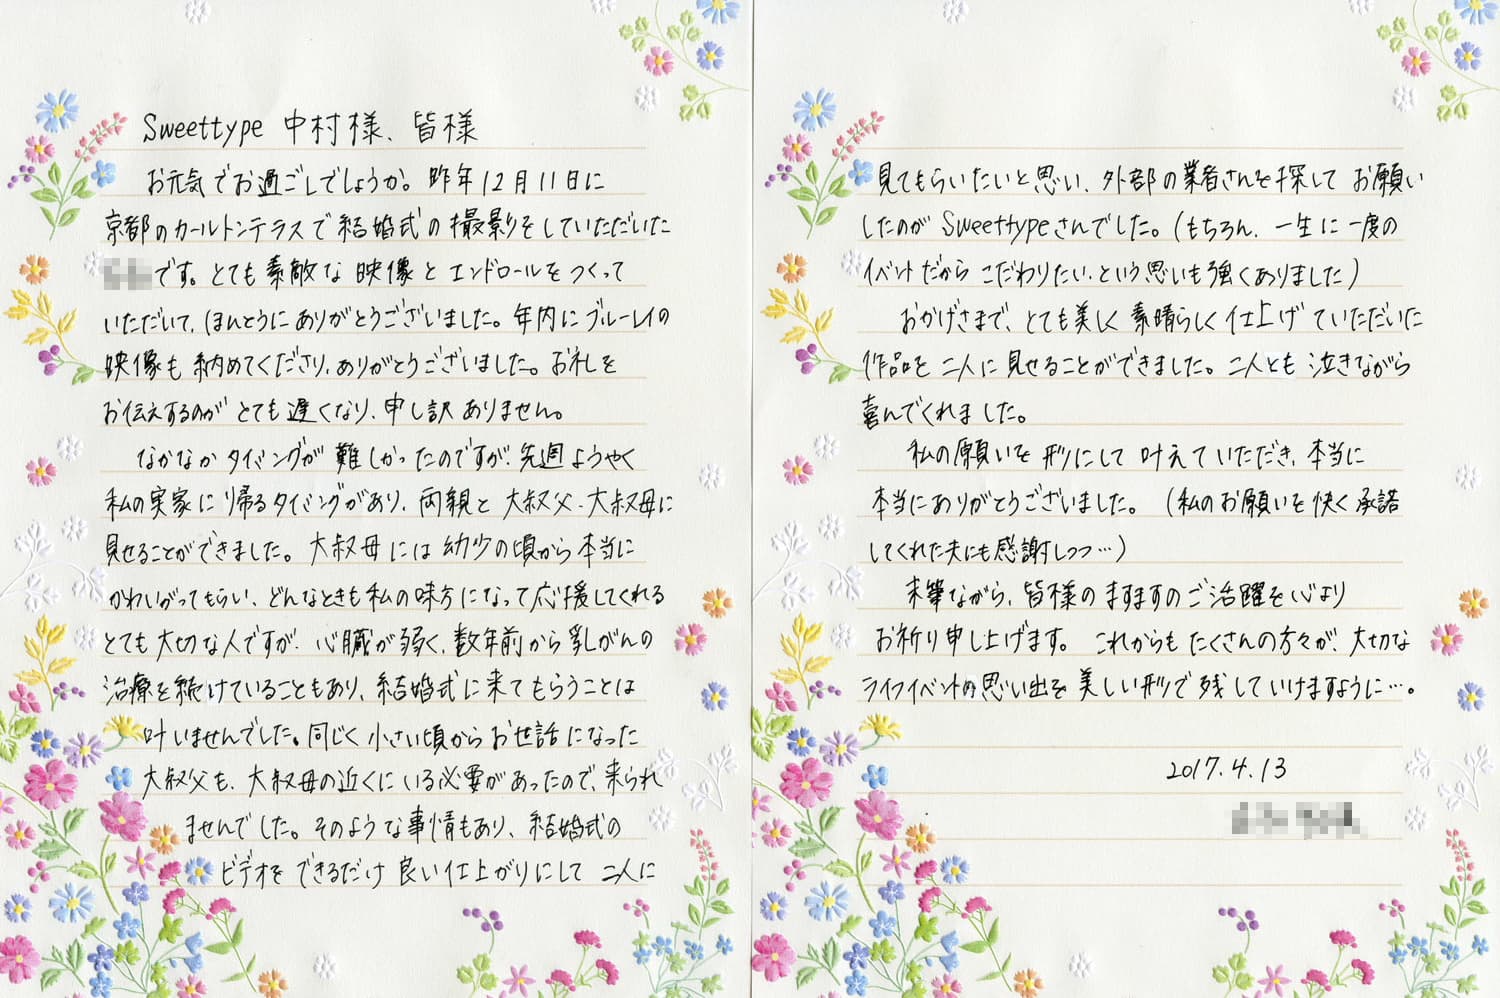 Sweettype 中村様、皆様
お元気でお過ごしでしょうか。昨年12月11日に
京都のカールトンテラスで結婚式の撮影をしていただいた
です。とても素敵な映像とエンドロールをつくって
いただいて、ほんとうにありがとうございました。年内にブルーレイの
映像も納めてくださり、ありがとうございました。お礼を
お伝えするのがとても遅くなり、申し訳ありません。
なかなかタイミングが難しかったのですが、先週ようやく
私の実家に帰るタイミングがあり、両親と大叔父・大叔母に
見せることができました。大叔母には幼少の頃から本当に
かわいがってもらい、どんなときも私の味方になって応援してくれる
とても大切な人ですが、心臓が弱く、数年前から乳がんの
治療を続けていることもあり、結婚式に来てもらうことは
叶いませんでした。同じく小さい頃からお世話になった
大叔父も、大叔母の近くにいる必要があったので、来られ
ませんでした。そのような事情もあり、結婚式の
ビデオをできるだけ良い仕上がりにして二人に
見てもらいたいと思い、外部の業者さんを探してお願い
したのがSweettypeさんでした。(もちろん、一生に一度の
イベントだからこだわりたい、という思いも強くありました)
おかげさまで、とても美しく素晴らしく仕上げていただいた
作品を二人に見せることができました。二人とも泣きながら
喜んでくれました。
私の願いを形にして叶えていただき、本当に
本当にありがとうございました。(私のお願いを快く承諾
してくれた夫にも感謝しつつ…)
末筆ながら、皆様のますますのご活躍を心より
お祈り申し上げます。これからもたくさんの方々が、大切な
ライフイベントの思い出を美しい形で残していけますように…。
2017.4.13